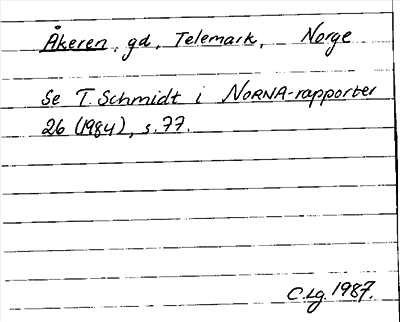 Åkeren, gd, Telemark, Norge
Se T. Schmidt i NORNA-rapporter
26 (1984), s. 77.
C.Lg. 1987.